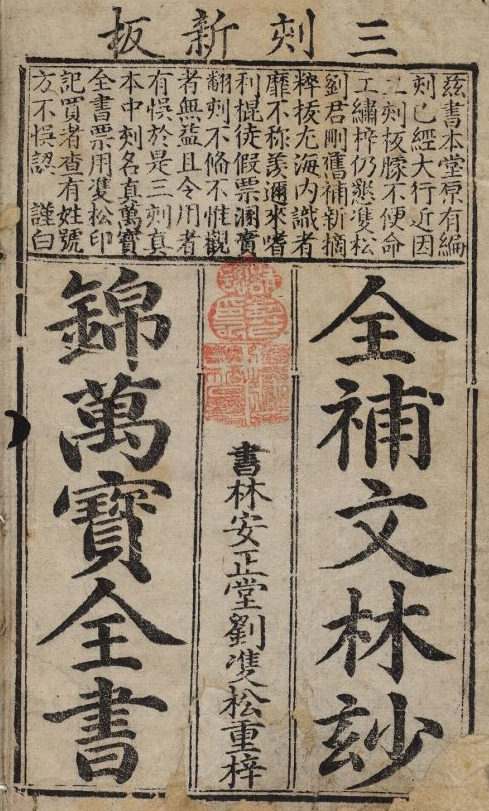 三刻新板
茲書本堂原有編
刻已經大行近因
二刻板朦不便命
工繡梓仍懇雙松
劉君刪舊補新摘
粹拔尤海內識者
靡不称羨邇來嗜
利棍徒假票溷賣
翻刻不偹不惟觀
者無益且令用者
有悞於是三刻真
本中刻名真萬寶
全書票用雙松印
記買者查有姓號
方不悞認 謹白
全補文林玅
書林安正堂劉雙松重梓
錦萬寶全書